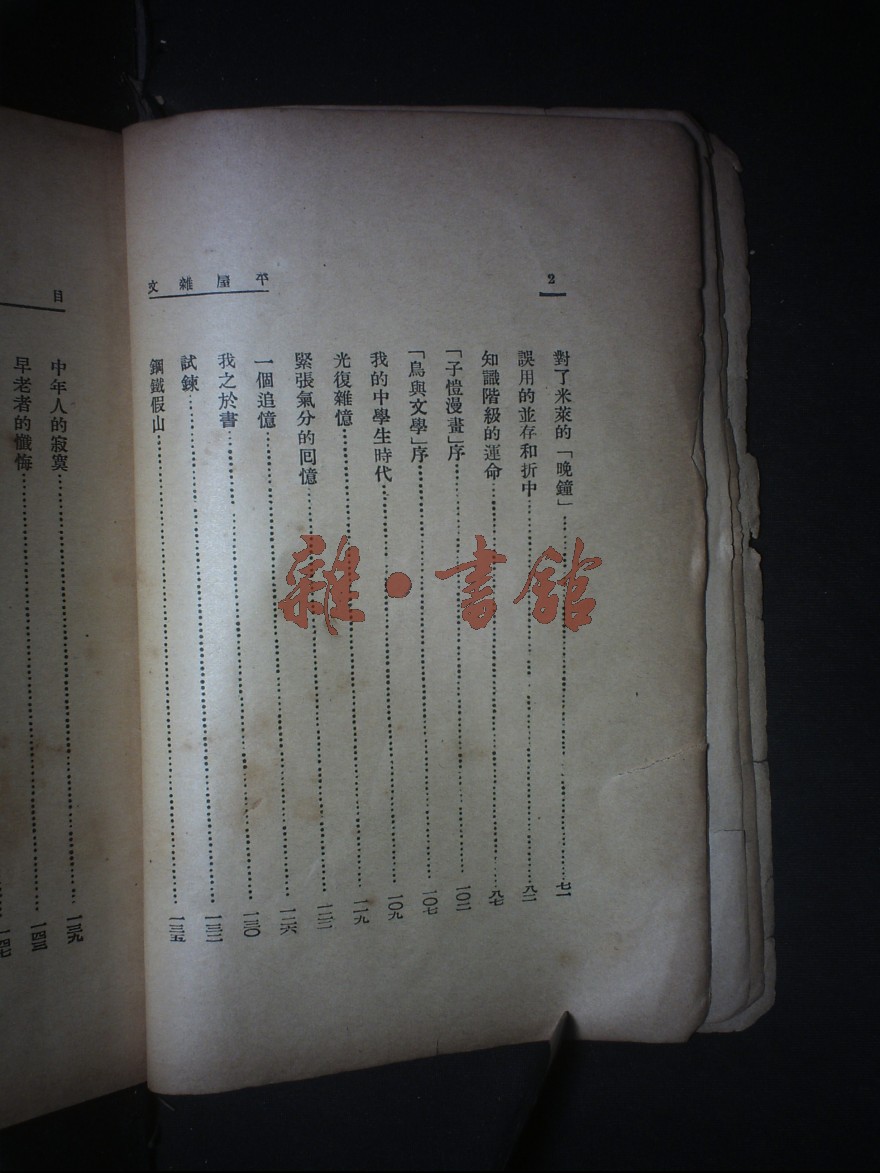 2
平屋雜文
對了米萊的「晚鐘」……七一
誤用的並存和折中……八二
知識階級的運命……八七
「子愷漫畫」序……一〇二
「鳥與文學」序……一〇七
我的中學生時代……一〇九
光復雜憶……一一九
緊張氣分的回憶……一二二
一個追憶……一二六
我之於書……一三〇
試鍊……一三二
鋼鐵假山……一三五
目
中年人的寂寞……一三九
早老者的懺悔……一四三
一四七
雜·書館